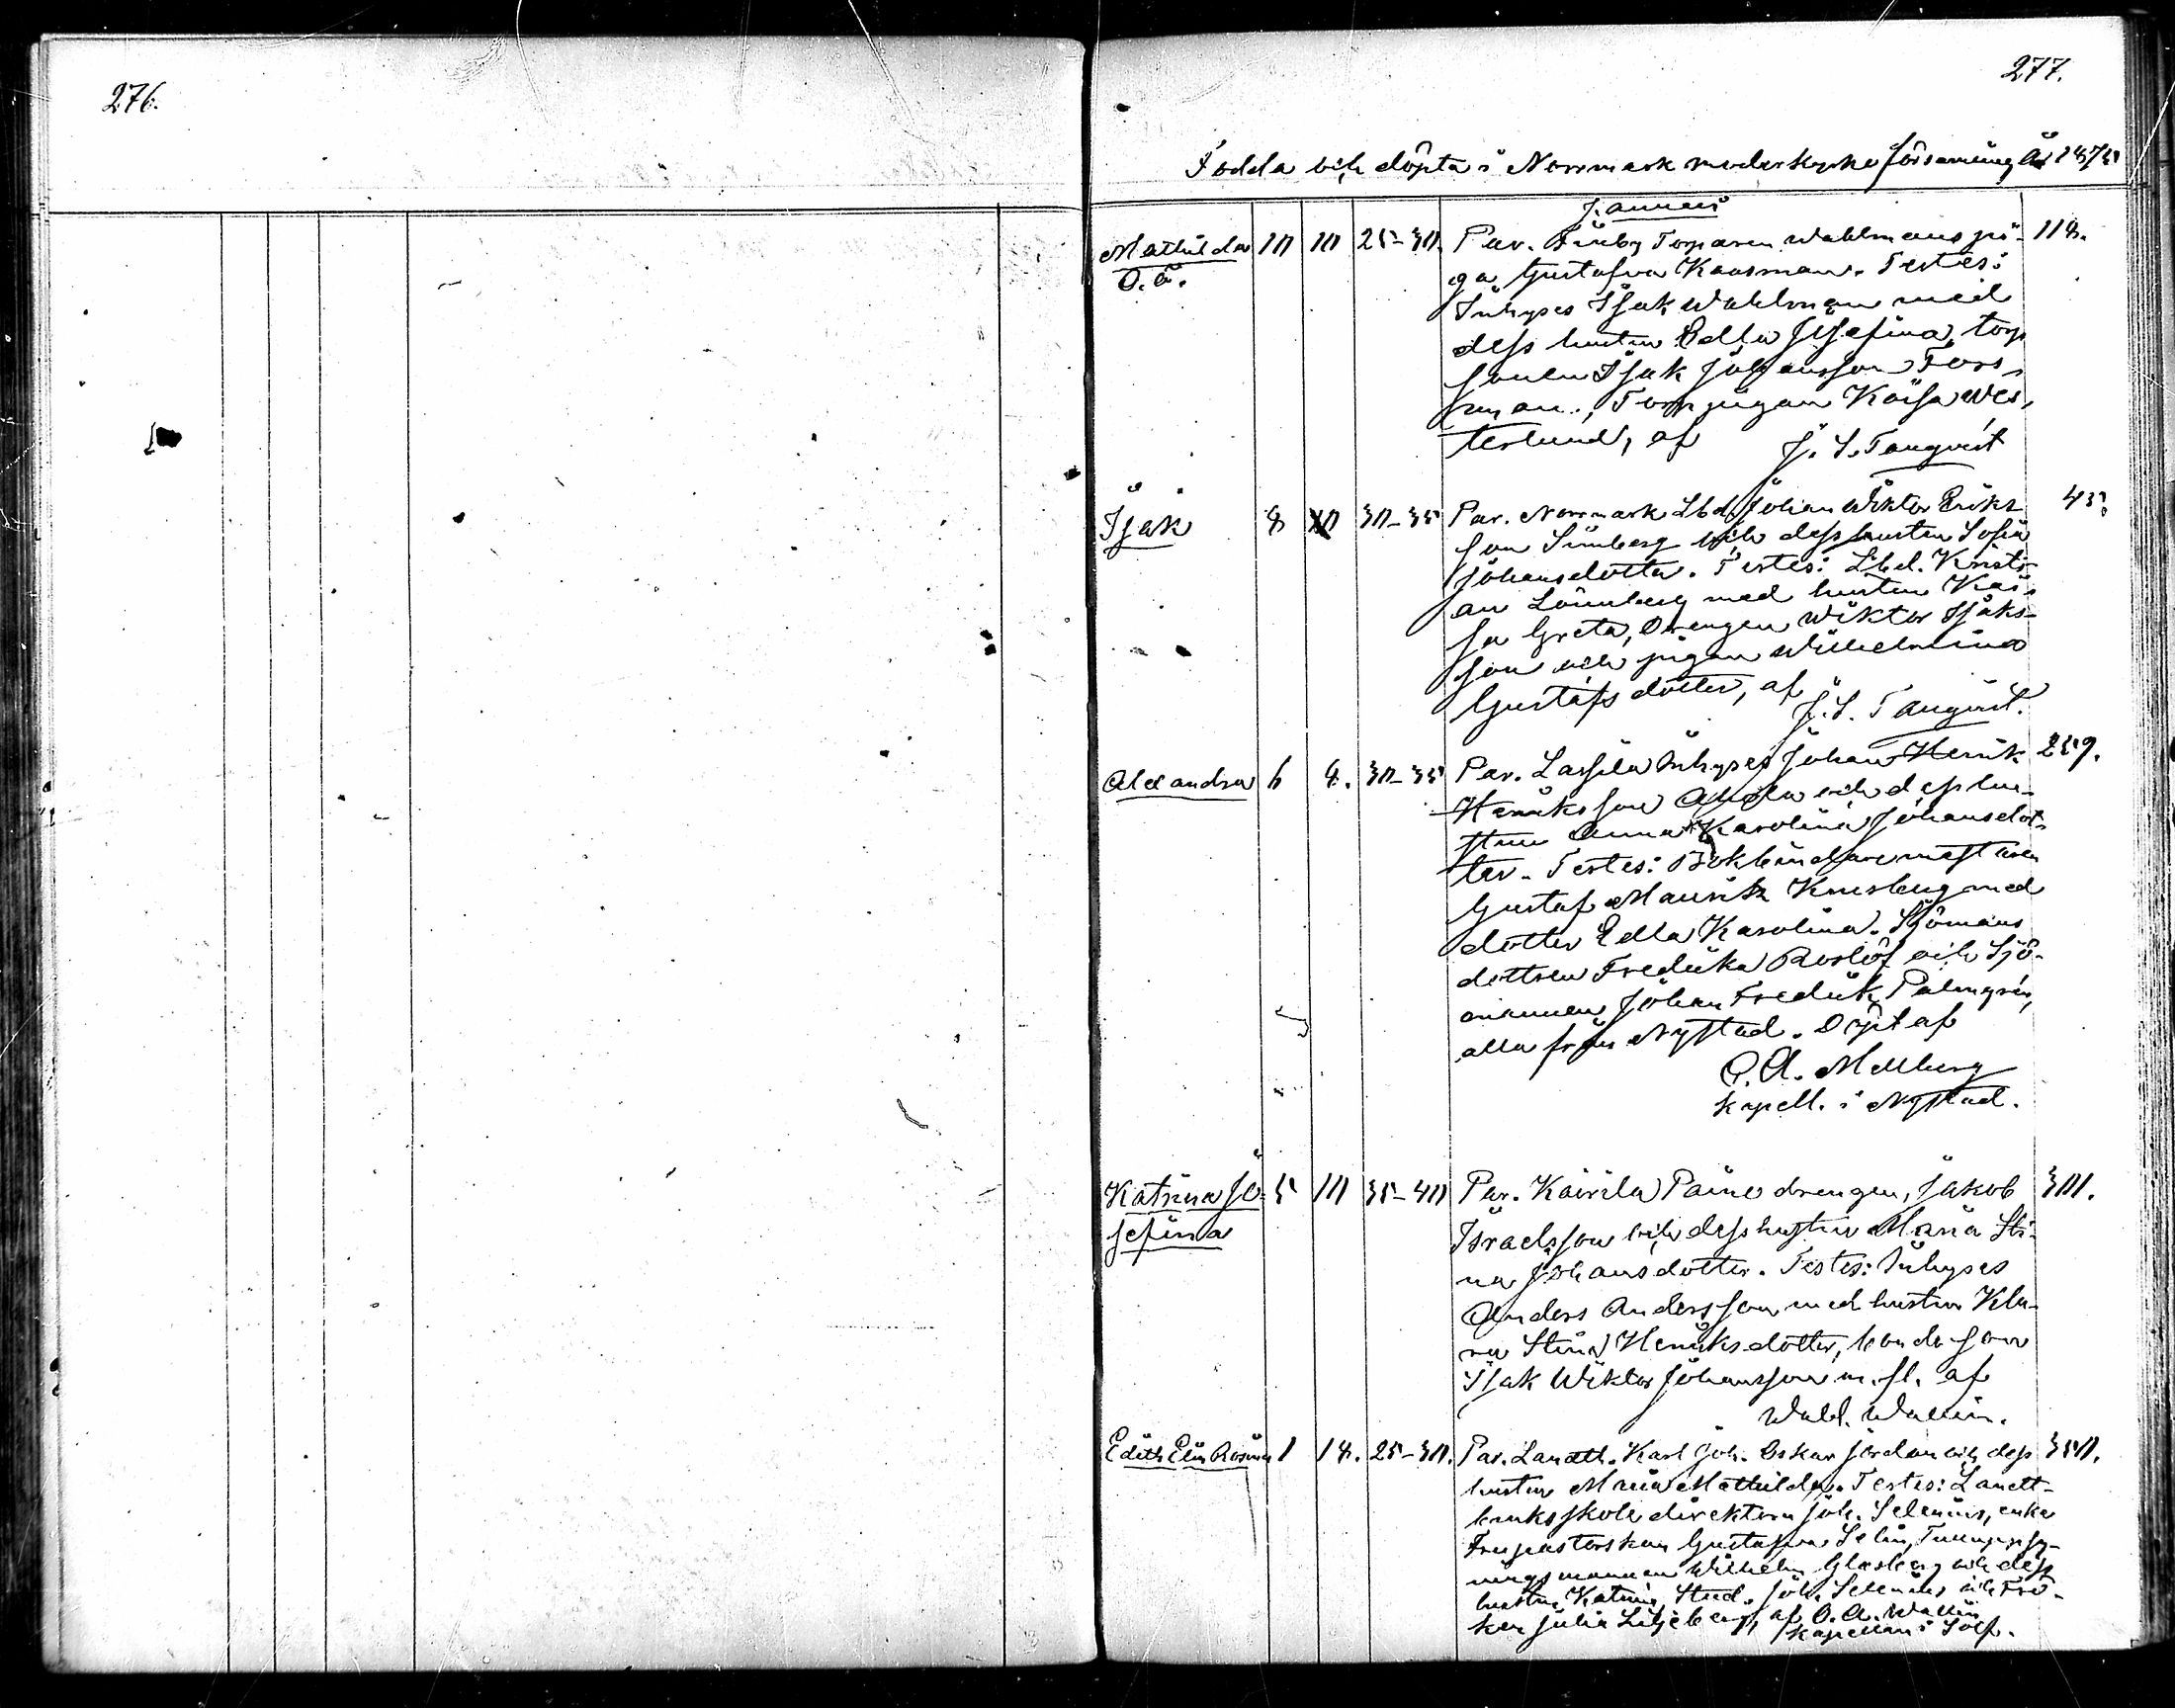 276.
277.
Födda och döpta i Norrmark moderkyrko församling År 1875
Januari
Mathilda 10 10 25-30. Par. Finby Torparen Wahlmans pi- 118.
O.ä. ga Gustafva Kaasman. Testes:
Inhyses Isak Wahlman med
dess hustru Edla Josefina, torp
sonen Isak Johansson Fors-
man, Torppigan Kaisa Wes-
terlund, af J. S. Tanqvist
Isak 8 10 30-35 Par. Norrmark Lbd. Johan Wiktor Eriks- 45.
son Sünberg och dess hustru Sofia
Johansdotter. Testes: Lbd. Kristi-
an Lönnberg med hustru Kai-
sa Greta, Drengen Wiktor Isaks-
son och pigan Wilhelmina
Gustafsdotter, af
J. S. Tanqvist.
Alexandra 6 8. 30-35 Par. Lassila Inhyses Johan Henrik 259.
Henriksson och dess hu-
stru Anna Karolina Johansdot-
ter. Testes: Bokbindaremästaren
Gustaf Maurits Knusberg med
dotter Edla Karolina. Sjömans
dottren Fredrika Roslöf och Sjö-
mannen Johan Fredrik Palmgrén,
alla från Nystad. Döpt af
C. A. Mellberg
kapell. i Nystad.
Katrina Jo- 5 10 35-40 Par. Kairila Paine drengen, Jakob 301.
sefina Israelsson och dess hustru Maria Sti-
na Johansdotter. Testes: Inhyses
Anders Andersson med hustru Kla-
ra Stina Henriksdotter, bondeson
Isak Wiktor Johansson m. fl. af
Wald. Wallin.
Edith Elin Rosina 1 18. 25-30. Par. Landtb. Karl Joh. Oskar Jordan och dess 350.
hustru Maria Mathilda. Testes: Landt-
bruksskole direktorn Joh. Selenius, enke
Fru pastorskan Gustafva Selin,
ningsmannen Wilhelm Glasberg och dess
hustru Katrina, Stud. Joh. Selenius och Frö-
ken Julia Liljeberg, af O. A. Wallin
kapellan i Solf.